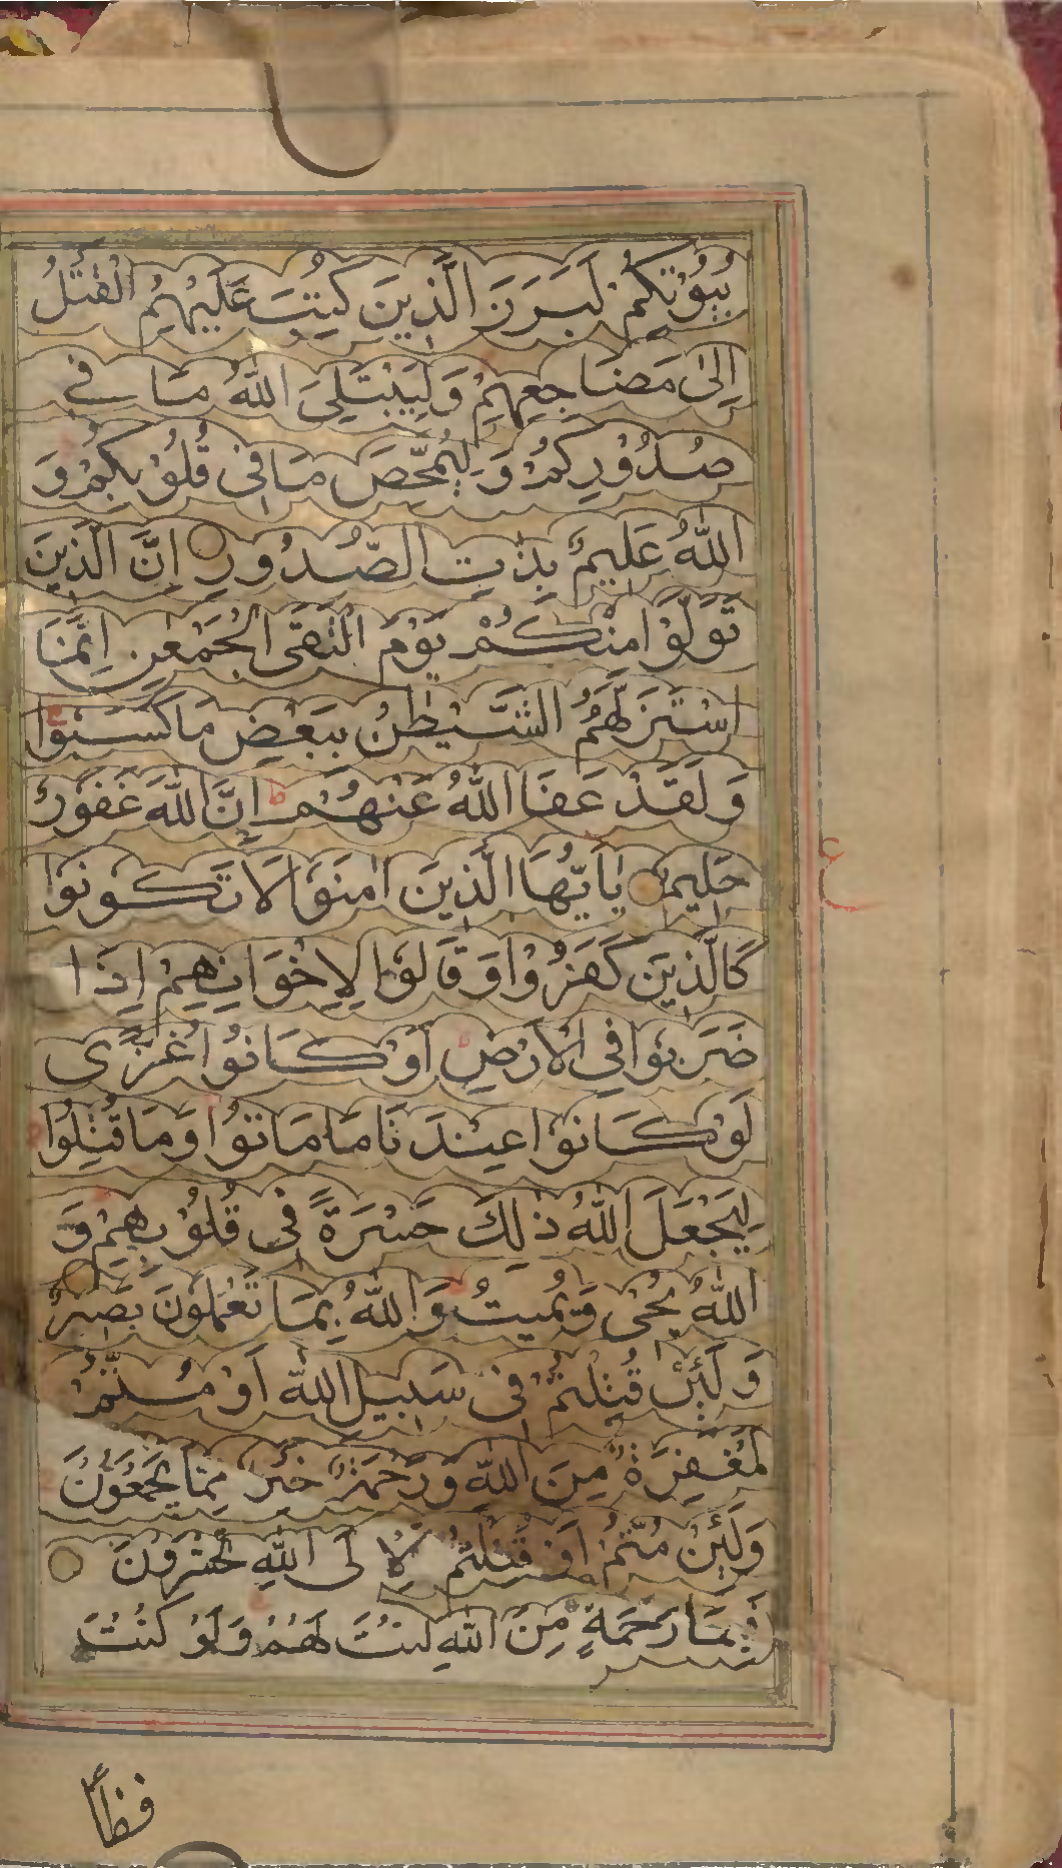 بُيُوْتِكُمْ لَبَرَزَ الَّذِينَ كُتِبَ عَلَيْهِمُ الْقَتْلُ
اِلٰى مَضَاجِعِهِمْ وَلِيَبْتَلِيَ اللّٰهُ مَا فِي
صُدُوْرِكُمْ وَلِيُمَحِّصَ مَا فِى قُلُوْبِكُمْ وَ
اللّٰهُ عَلِيمٌ بِذٰتِ الصُّدُورِ اِنَّ الَّذِينَ
تَوَلَّوْا مِنْكُمْ يَوْمَ الْتَقَى الْجَمْعٰنِ اِنَّمَا
اسْتَزَلَّهُمُ الشَّيْطٰنُ بِبَعْضِ مَا كَسَبُوْا
وَلَقَدْ عَفَا اللّٰهُ عَنْهُمْ ط اِنَّ اللّٰهَ غَفُوْرٌ
حَلِيمٌ يٰاَيُّهَا الَّذِينَ اٰمَنُوْا لَا تَكُونُوْا
ع
كَالَّذِيَن كَفَرُوْا وَقَالُوْا لِاِخْوَانِهِمْ اِذَا
ضَرَبُوْا فِي الْاَرْضِ اَوْ كَانُوْا غُزًّى
لَوْ كَانُوْا عِنْدَنَا مَا مَاتُوْا وَمَا قُتِلُوْا
لِيَجْعَلَ اللّٰهُ ذٰلِكَ حَسْرَةً فِى قُلُوْبِهِمْ وَ
اللّٰهُ يُحْىٖ وَيُمِيتُ وَاللّٰهُ بِمَا تَعْمَلُونَ بَصِيرٌ
وَلَئِنْ قُتِلْتُمْ فِى سَبِيلِ اللّٰهِ اَوْ مُتُّمْ
لَمَغْفِرَةٌ مِنَ اللّٰهِ وَرَحْمَةٌ خَيْرٌ مِمَّا يَجْمَعُوْنَ
وَلَئِنْ مُتُّمْ اَوْ قُتِلْتُمْ لَا لَى اللّٰهِ تُحْشَرُوْنَ
فَبِمَا رَحْمَةٍ مِنَ اللّٰهِ لِنْتَ لَهُمْ وَلَوْ كُنْتَ
فظاً